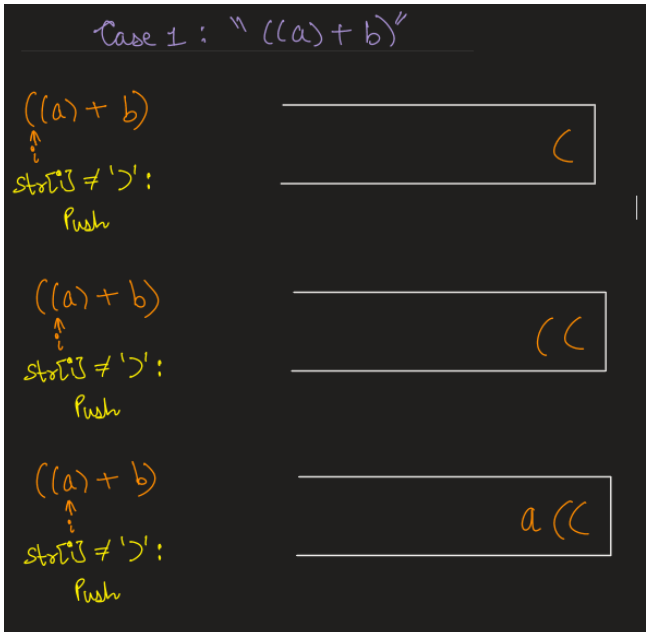 Case 1 : " ((a) + b)"
((a) + b)
(
i
str[i] ≠ ')' :
Push
((a) + b)
( (
i
str[i] ≠ ')' :
Push
((a) + b)
a ( (
i
str[i] ≠ ')' :
Push